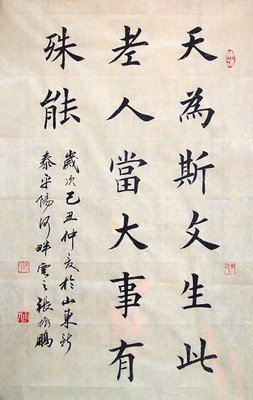 天為斯文生此
老人當大事有
殊能
歲次己丑仲夏於山東新
泰平陽河畔之張鵬